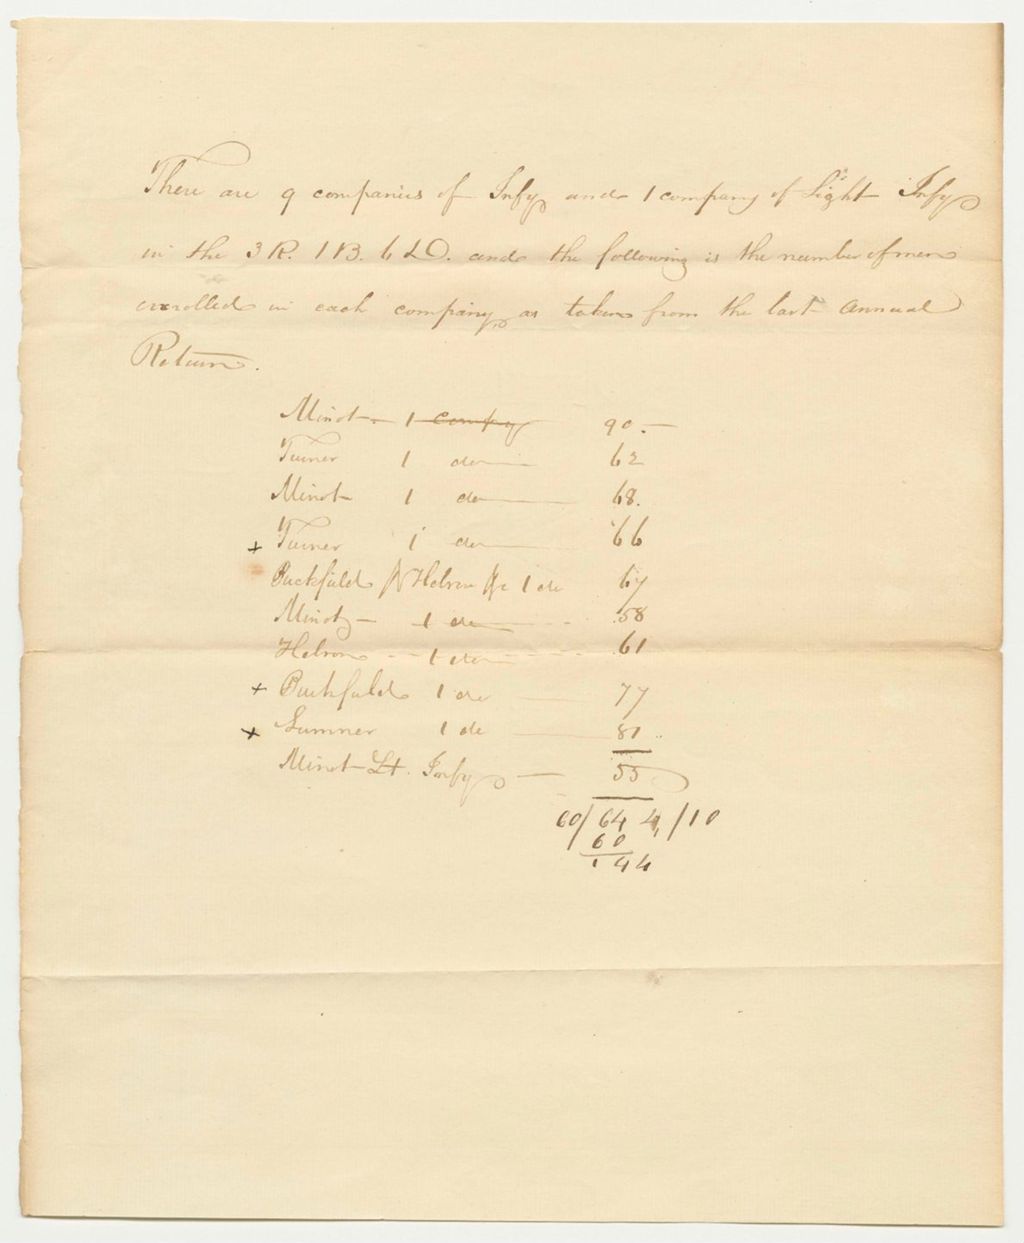 There are 9 companies of Infy and 1 company of Light Infy
in the 3 R. 1 B. 6 D. and the following is the number of men
enrolled in each company as taken from the last annual
Return.
Minot 1 compy 90.
Turner 1 do 62
Minot 1 do 68.
+ Turner 1 do 66
Buckfield & Hebron 1 do 67
Minot 1 do 58
Hebron 1 do 61
+ Buckfield 1 do 77
+ Sumner 1 do 81
Minot Lt. Infy 55
60/644/10
60
144